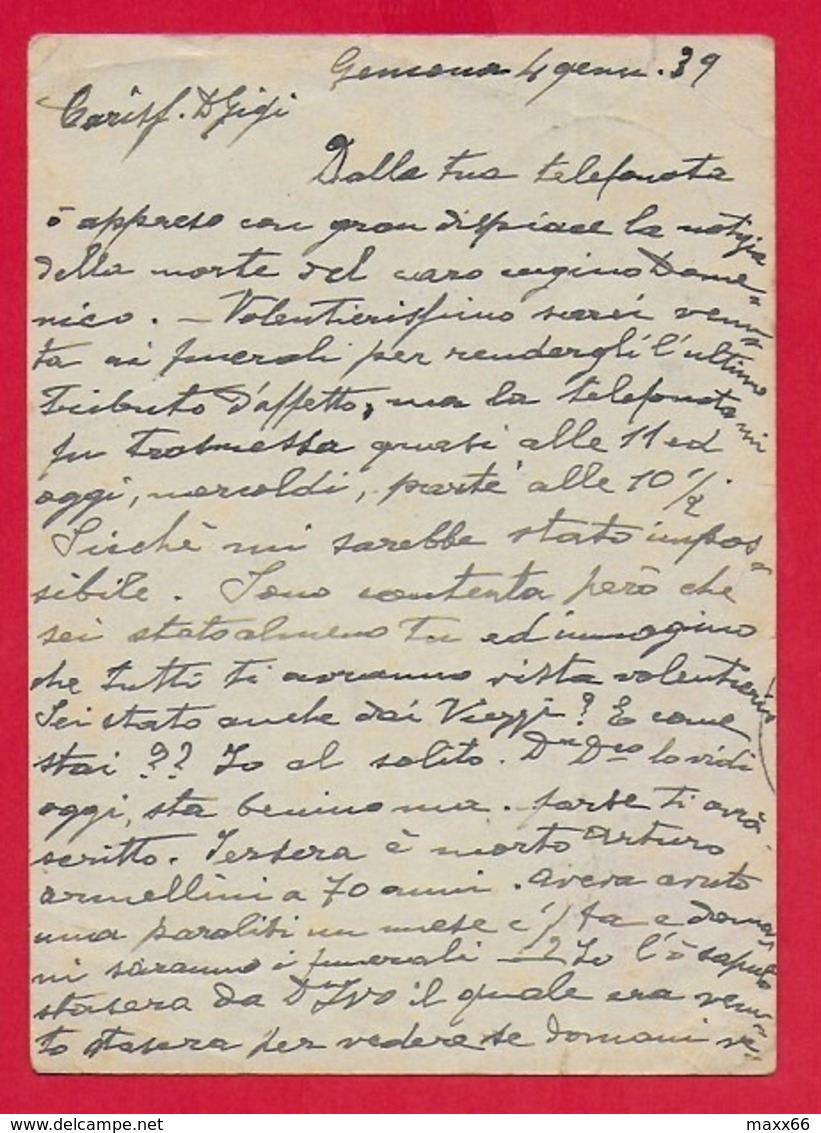 Gemona 4 genn. 39
Cariss. D Gigi
Dalla tua telefonata
ò appreso con gran dispiace la notizia
della morte del caro cugino Dome=
nico. – Volentierissimo sarei venu=
ta ai funerali per rendergli l'ultimo
tributo d'affetto, ma la telefonata mi
fu trasmessa quasi alle 11 ed
oggi, mercoldì, parte alle 10 1/2
Sicchè mi sarebbe stato impos=
sibile. Sono contenta però che
sei stato almeno tu ed immagino
che tutti ti avranno vista volentieri
Sei stato anche dai Viezzi? E come
stai ?? Io al solito. Dn Dco lo vidi
oggi, sta benino ma. forse ti avrà
scritto. Iersera è morto Arturo
Armellini a 70 anni. Aveva avuto
una paralisi un mese fa e doma=
ni saranno i funerali – Io l'ò saputo
stasera da Dn Ivo il quale era venu=
to stasera per vedere se domani ve=
delcampe.net
maxx66